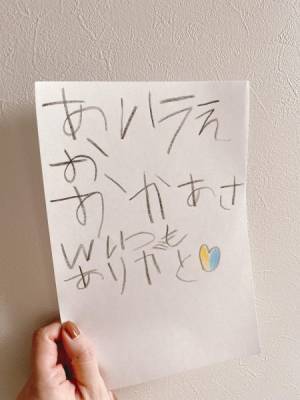 あいうえ
お
おかあさ
んいつも
ありがと